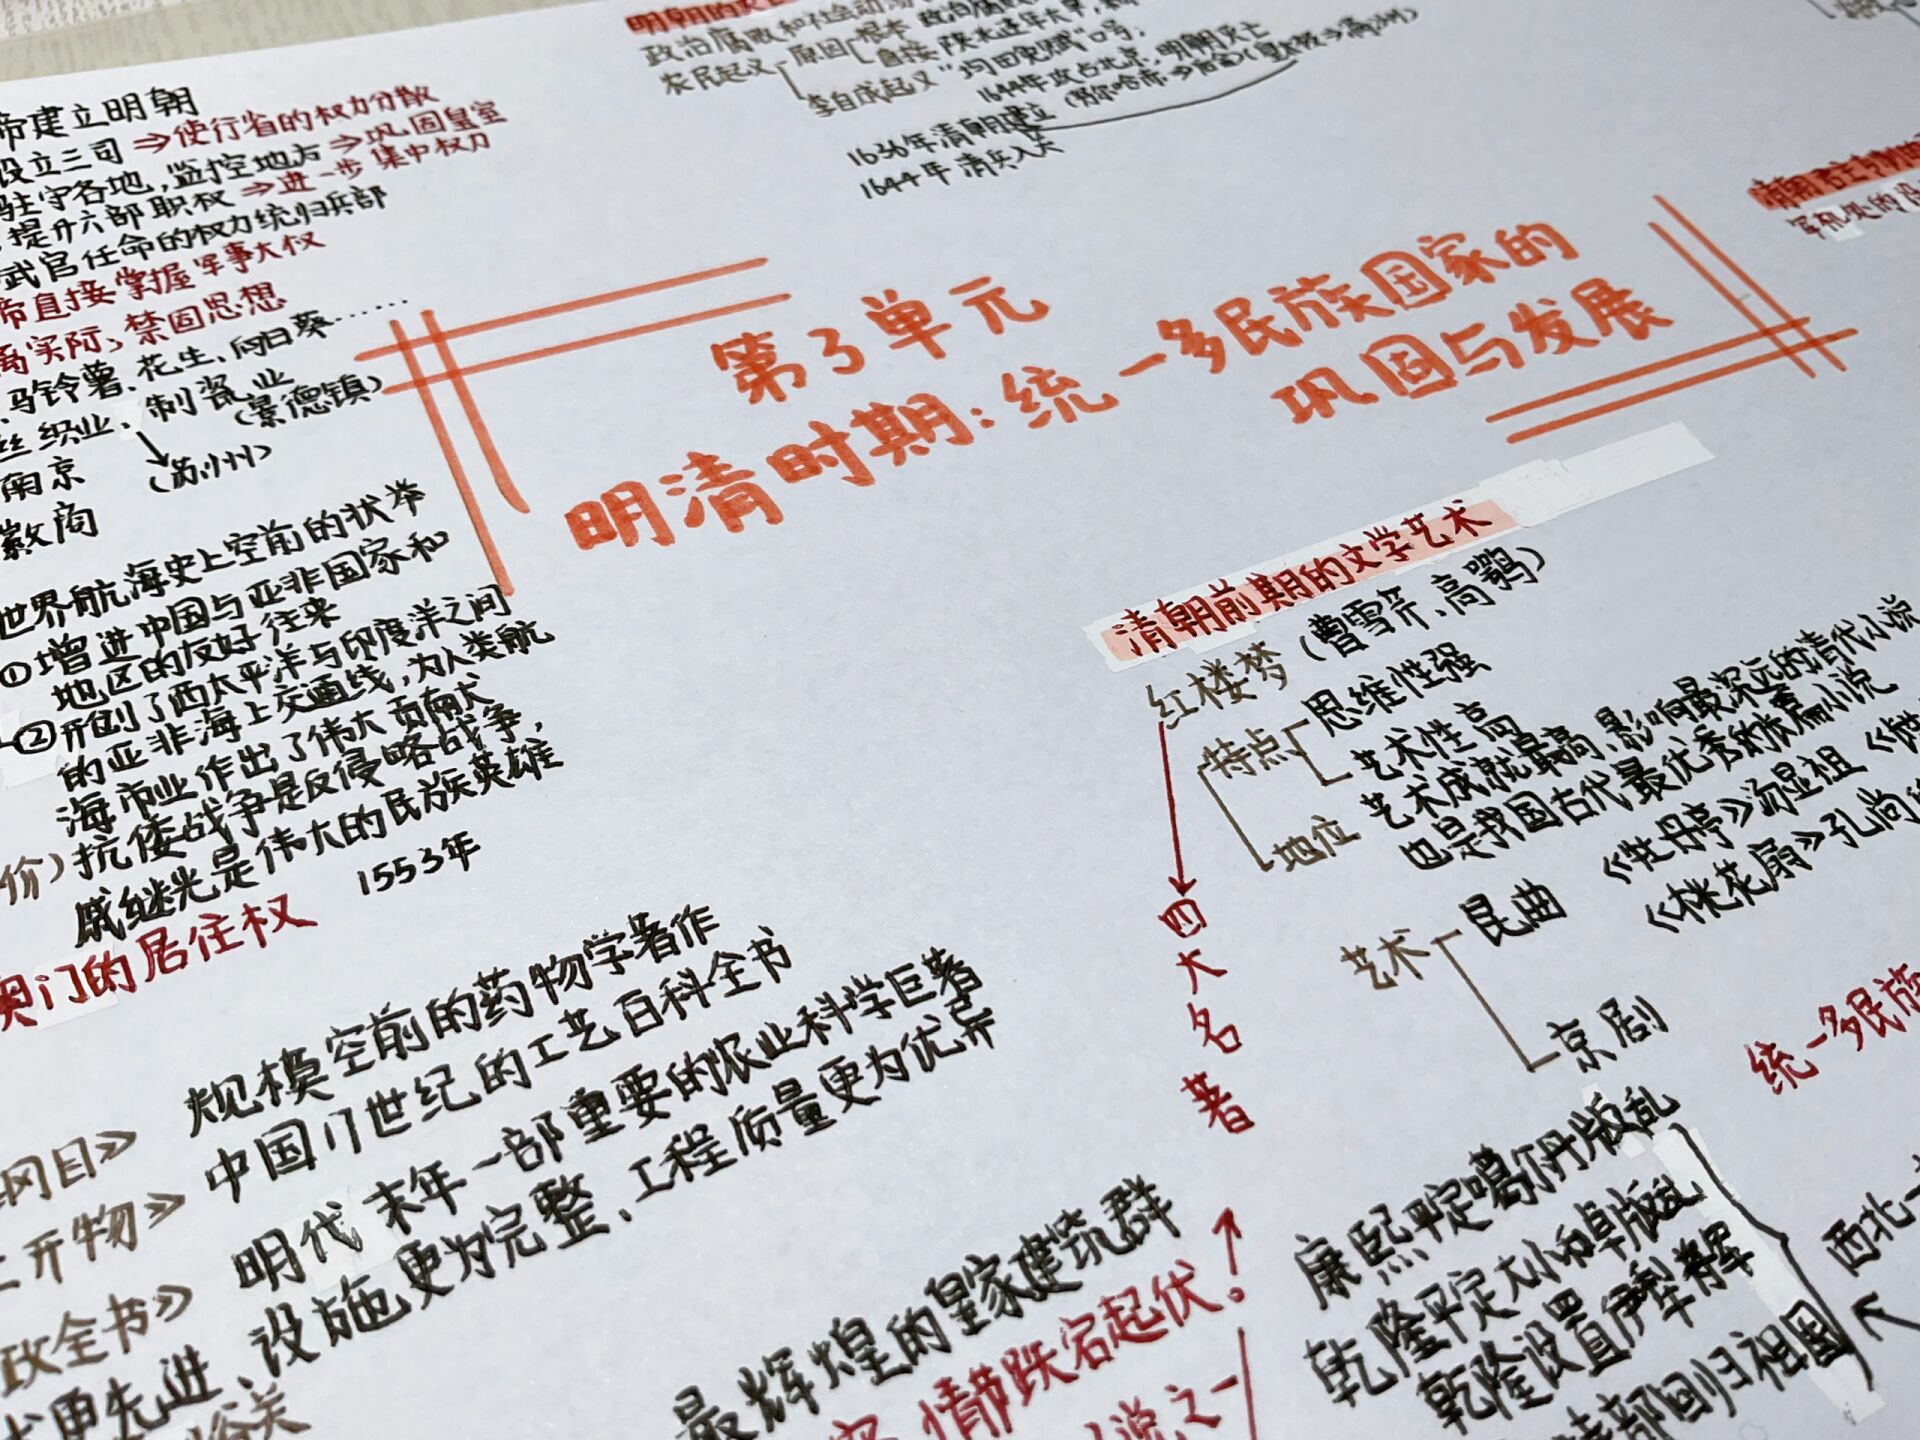 帝建立明朝
设立三司⇒使行省的权力分散
驻守各地,监控地方⇒巩固皇室
提升六部职权⇒进一步集中权力
武官任命的权力统归兵部
帝直接掌握军事大权
离实际,禁固思想
马铃薯、花生、向日葵……
丝织业、制瓷业
(景德镇)
南京
(苏州)
徽商
世界航海史上空前的状举
①增进中国与亚非国家和
地区的友好往来
②开创了西太平洋与印度洋之间
的亚非海上交通线,为人类航
海市业作出了伟大贡献
价)抗倭战争是反侵略战争,
戚继光是伟大的民族英雄
1553年
澳门的居住权
纲目》 规模空前的药物学著作
工开物》 中国17世纪的工艺百科全书
政全书》 明代末年一部重要的农业科学巨著
更先进、设施更为完整、工程质量更为优异
最辉煌的皇家建筑群
情节跌宕起伏。
说之一
政治腐败和社会动荡
农民起义 原因 根本
直接
李自成起义 "均田免赋"口号;
1644年攻占北京,明朝灭亡
1636年清朝建立
1644年 清兵入关
第3单元
明清时期:统一多民族国家的
巩固与发展
军机处的设
清朝前期的文学艺术
红楼梦(曹雪芹、高鹗)
特点 思维性强
艺术性高
地位 艺术成就最高、影响最深远的清代小说
也是我国古代最优秀的长篇小说
四大名著
艺术 昆曲 《牡丹亭》汤显祖
《桃花扇》孔尚
京剧
统一多民族
康熙平定噶尔丹叛乱
乾隆平定大小和卓叛乱
乾隆设置伊犁将军
部回归祖国
西北